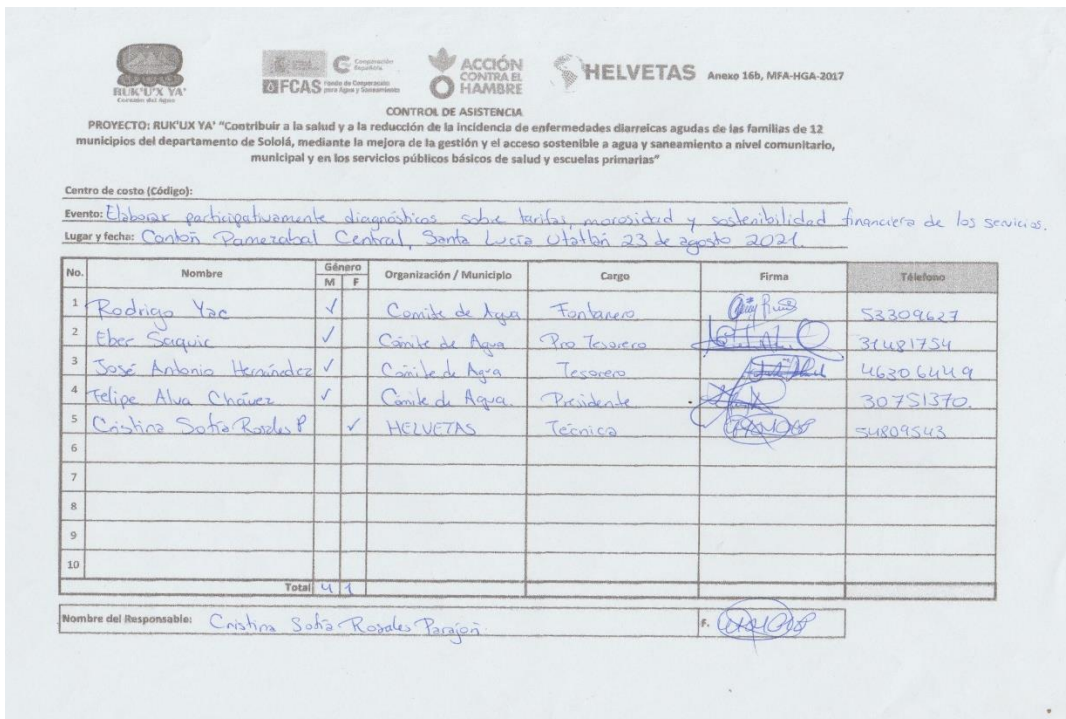 RUK'UX YA'
Corazón del Agua
Cooperación Española
FCAS Fondo de Cooperación para Agua y Saneamiento
ACCIÓN CONTRA EL HAMBRE
HELVETAS Anexo 16b, MFA-HGA-2017
CONTROL DE ASISTENCIA
PROYECTO: RUK'UX YA' "Contribuir a la salud y a la reducción de la incidencia de enfermedades diarreicas agudas de las familias de 12
municipios del departamento de Sololá, mediante la mejora de la gestión y el acceso sostenible a agua y saneamiento a nivel comunitario,
municipal y en los servicios públicos básicos de salud y escuelas primarias"
Centro de costo (Código):
Evento: Elaborar participativamente diagnósticos sobre tarifas, morosidad y sostenibilidad financiera de los servicios.
Lugar y fecha: Cantón Pamezabal Central, Santa Lucía Utatlán 23 de agosto 2021.
No. Nombre Género M F Organización / Municipio Cargo Firma Télefono
1 Rodrigo Yac ✓ Comite de Agua Fontanero 53309627
2 Eber Saquic ✓ Cómite de Agua Pro Tesorero 31481754
3 José Antonio Hernánedez ✓ Cómite de Agua Tesorero 46306449
4 Felipe Alva Chávez ✓ Cómite de Agua. Presidente 30751370.
5 Cristina Sofía Rosales P ✓ HELVETAS Técnica 54809543
6
7
8
9
10
Total 4 1
Nombre del Responsable: Cristina Sofía Rosales Parajón. F.